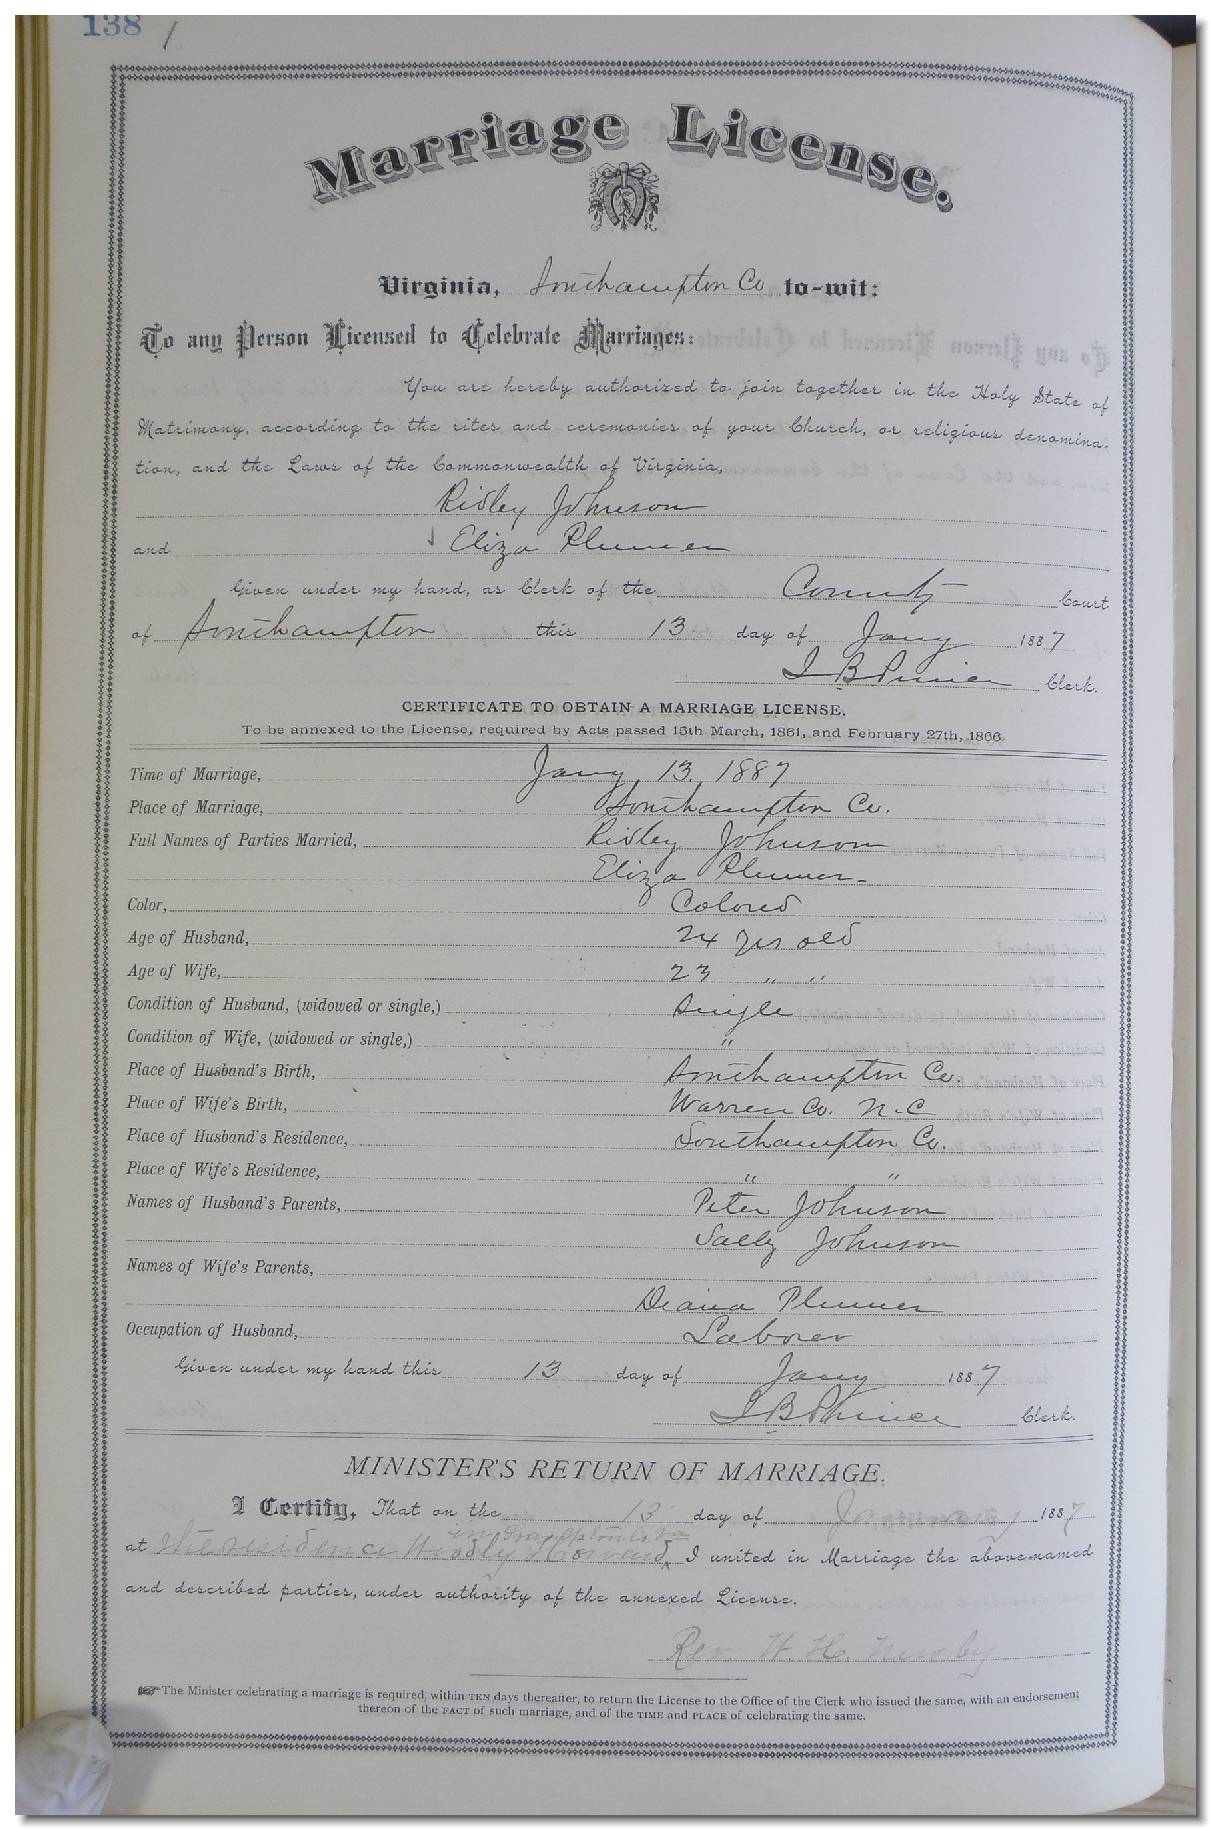 138 /
Marriage License.
Virginia, Southampton Co to-wit:
To any Person Licensed to Celebrate Marriages:
You are hereby authorized to join together in the Holy State of
Matrimony, according to the rites and ceremonies of your Church, or religious denomina-
tion, and the Laws of the Commonwealth of Virginia,
Ridley Johnson
and Eliza Plumer
Given under my hand, as Clerk of the County Court
of Southampton this 13 day of Jany 1887
J B Prince Clerk.
CERTIFICATE TO OBTAIN A MARRIAGE LICENSE.
To be annexed to the License, required by Acts passed 15th March, 1861, and February 27th, 1866.
Time of Marriage, Jany 13, 1887
Place of Marriage, Southampton Co.
Full Names of Parties Married, Ridley Johnson
Eliza Plumer
Color, Colored
Age of Husband, 24 yrs old
Age of Wife, 23 " "
Condition of Husband, (widowed or single,) Single
Condition of Wife, (widowed or single,) "
Place of Husband's Birth, Southampton Co
Place of Wife's Birth, Warren Co. N.C
Place of Husband's Residence, Southampton Co.
Place of Wife's Residence, " "
Names of Husband's Parents, Peter Johnson
Sally Johnson
Names of Wife's Parents,
Diana Plumer
Occupation of Husband, Laborer
Given under my hand this 13 day of Jany 1887
J B Prince Clerk.
MINISTER'S RETURN OF MARRIAGE.
I Certify, That on the 13 day of January 1887
at the residence I united in Marriage the above-named
and described parties, under authority of the annexed License.
Rev. W. H. Newby
The Minister celebrating a marriage is required, within TEN days thereafter, to return the License to the Office of the Clerk who issued the same, with an endorsement
thereon of the FACT of such marriage, and of the TIME and PLACE of celebrating the same.